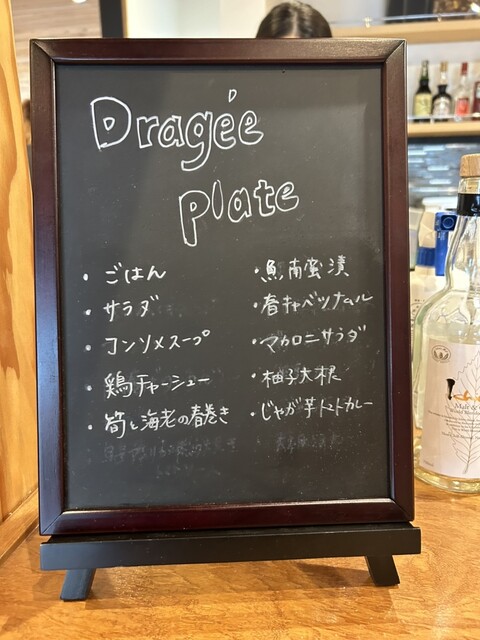 Dragée
plate
・ごはん
・サラダ
・コンソメスープ
・鶏チャーシュー
・筍と海老の春巻き
・魚南蛮漬
・春キャベツナムル
・マカロニサラダ
・柚子大根
・じゃが芋トマトカレー